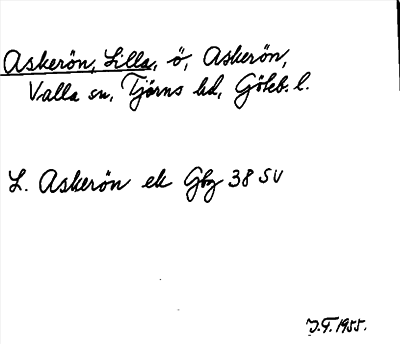 Askerön, Lilla, ö, Askerön,
Valla sn, Tjörns hd, Göteb. l.
L. Askerön ek Gbg 38 SV
J.T. 1955.